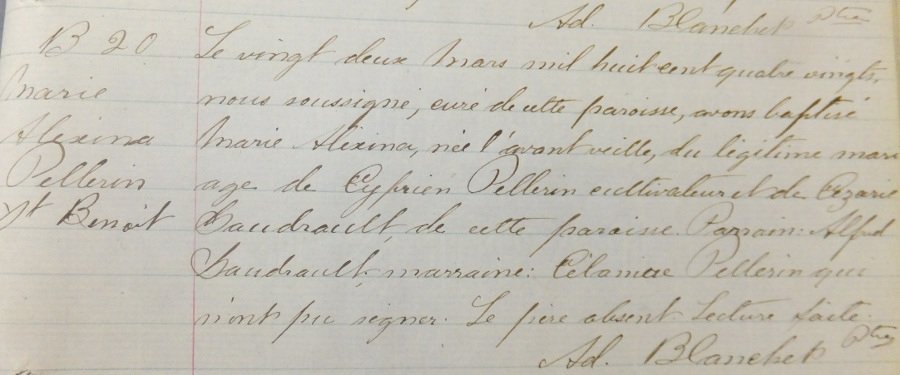 Ad. Blanchet Ptre
B 20
Marie
Alexina
Pellerin
St Benoit
Le vingt deux Mars mil huit cent quatre vingts,
nous soussigné, curé de cette paroisse, avons baptisé
Marie Alexina, née l'avant veille, du légitime mari
age de Cyprien Pellerin cultivateur et de Cézarie
Gaudrault, de cette paroisse. Parrain: Alfred
Gaudrault, marraine: Célanire Pellerin qui
n'ont pu signer. Le père absent. Lecture faite.
Ad. Blanchet Ptre